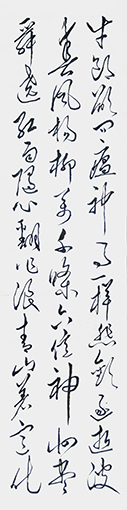 牛郎欲问瘟神事一样悲欢逐逝波
春风杨柳万千条六亿神州尽
舜尧红雨随心翻作浪青山着意化